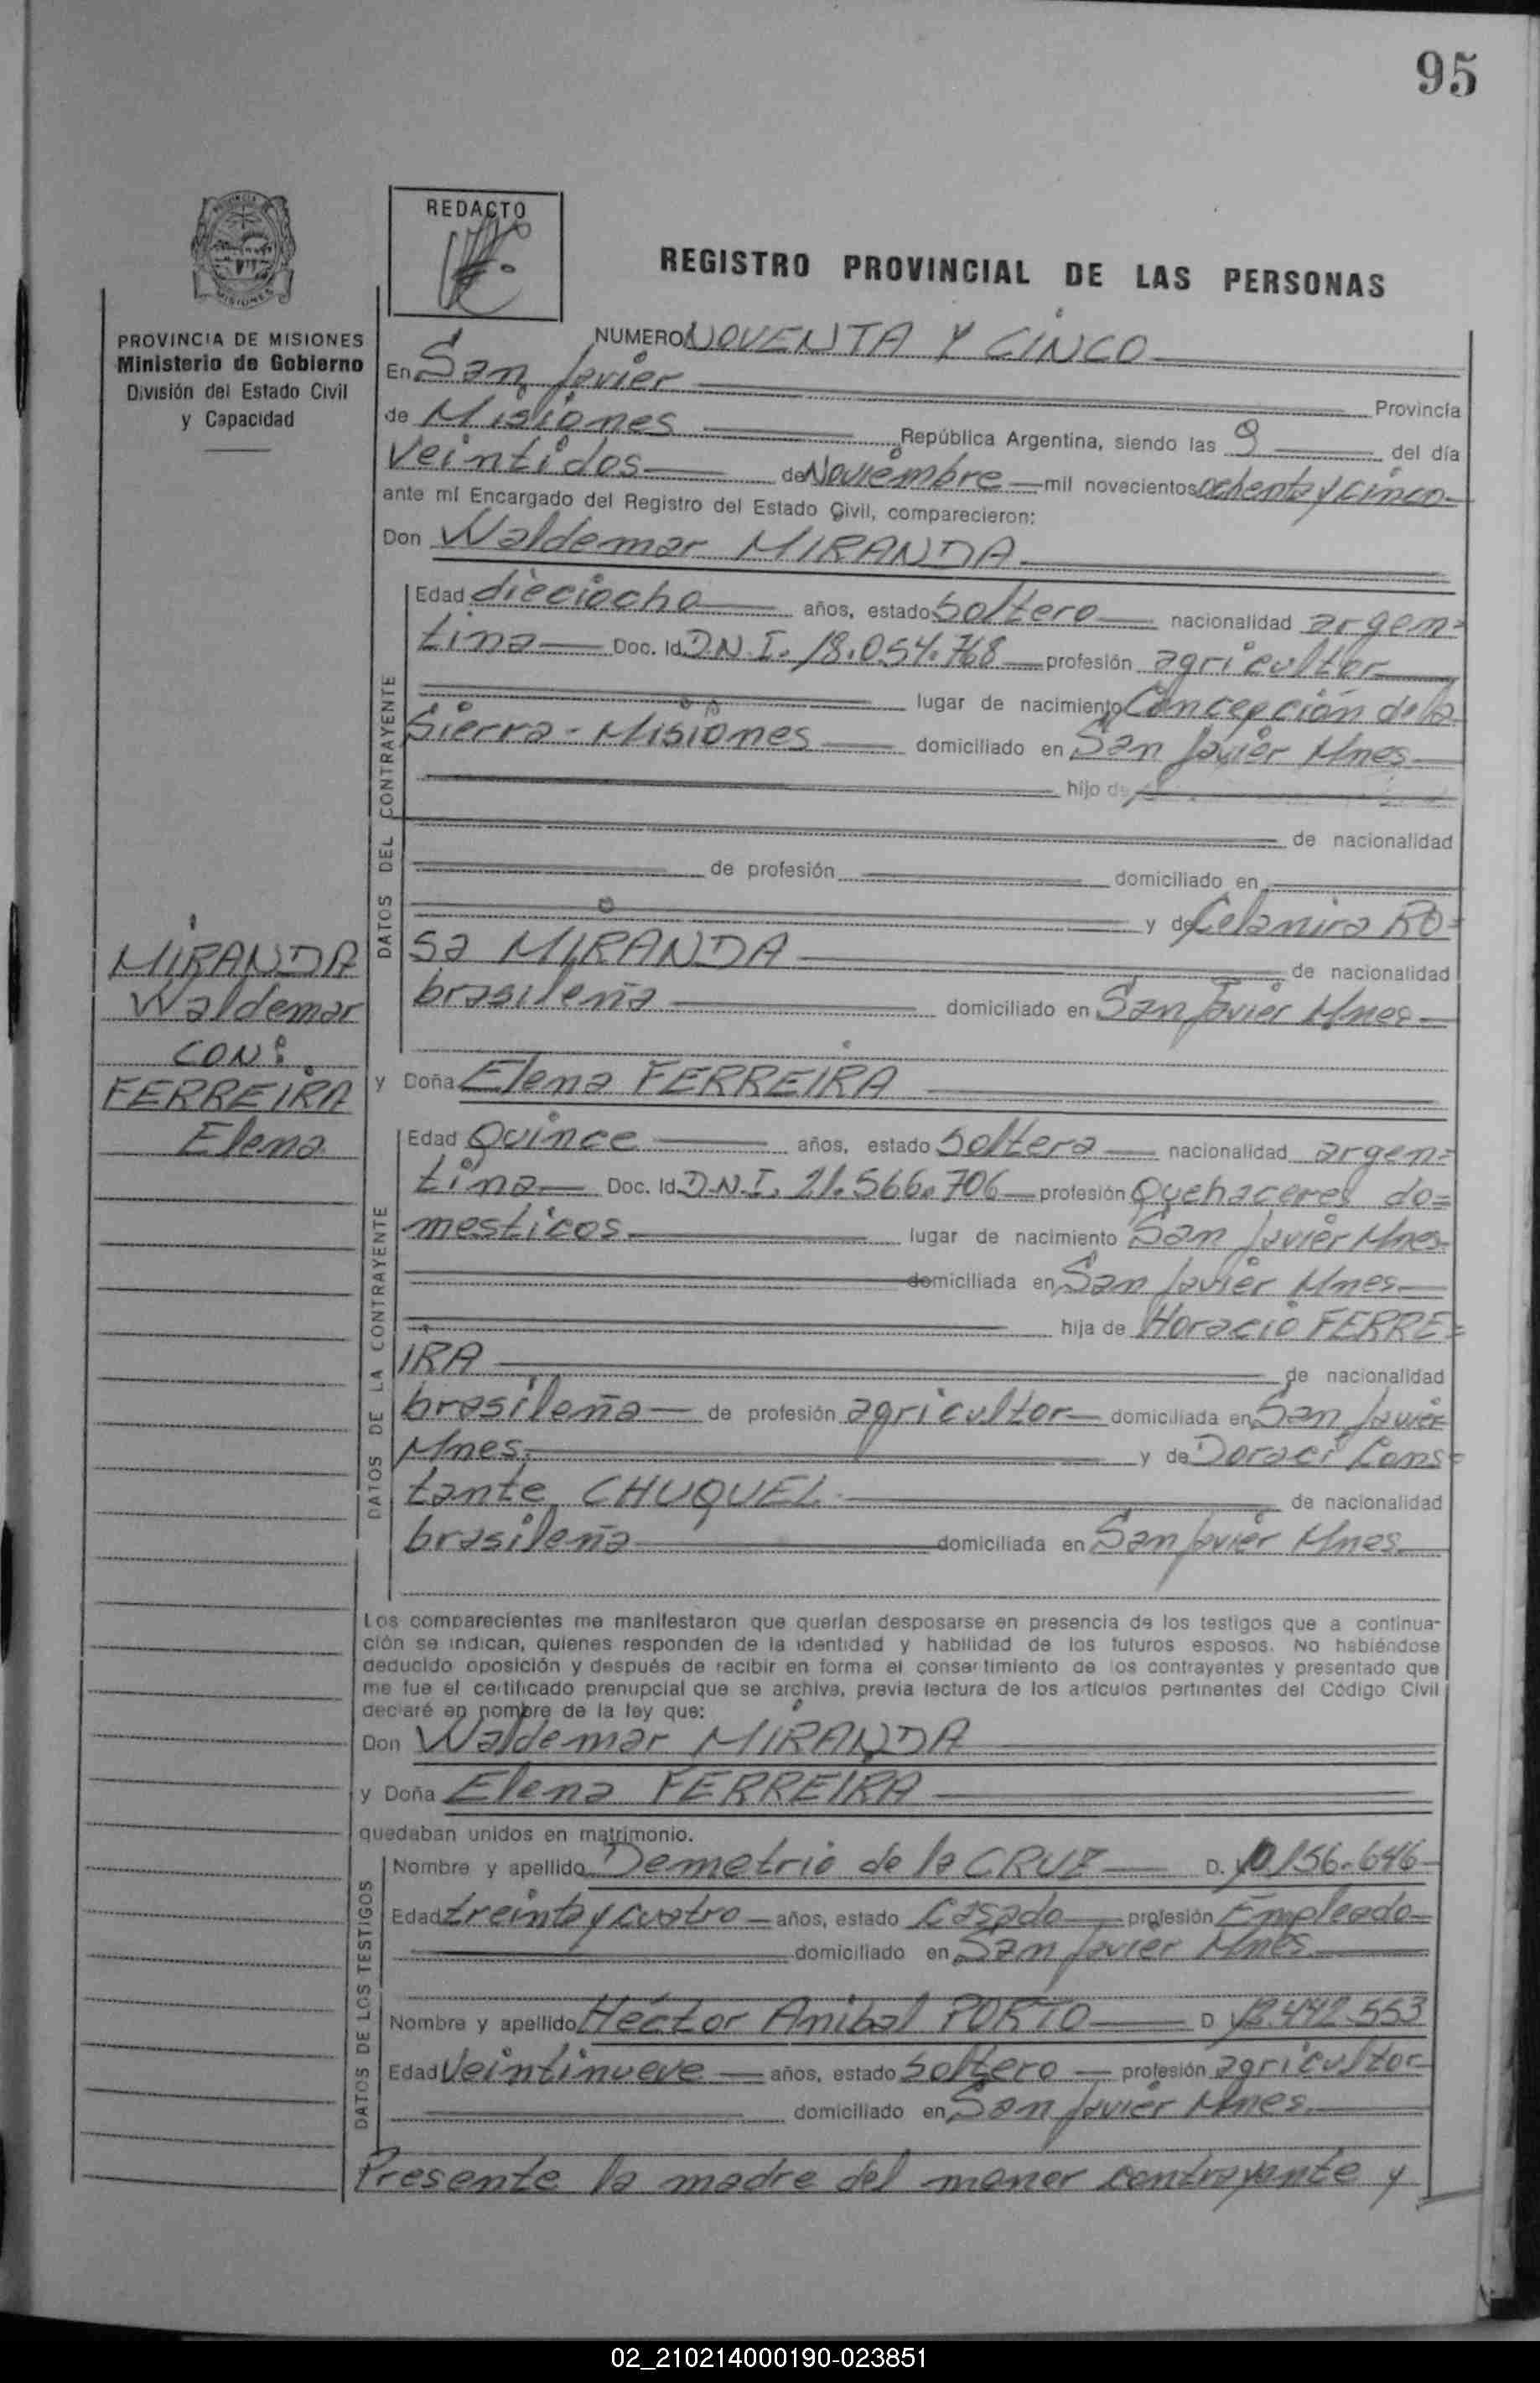 95
REDACTO
REGISTRO PROVINCIAL DE LAS PERSONAS
MISIONES
PROVINCIA DE MISIONES
Ministerio de Gobierno
División del Estado Civil
y Capacidad
NUMERO NOVENTA Y CINCO
En San Javier Provincia
de Misiones República Argentina, siendo las 9 del día
Veintidos de Noviembre mil novecientos ochenta y cinco
ante mí Encargado del Registro del Estado Civil, comparecieron:
Don Waldemar MIRANDA
DATOS DEL CONTRAYENTE
Edad dieciocho años, estado Soltero nacionalidad argen=
tina Doc. Id. D.N.I. 18.054.768 profesión agricultor
lugar de nacimiento Concepción de la
Sierra - Misiones domiciliado en San Javier Mnes
hijo de
de nacionalidad
de profesión domiciliado en
y de Celanira RO=
sa MIRANDA de nacionalidad
brasileña domiciliado en San Javier Mnes
MIRANDA
Waldemar
CON:
FERREIRA
Elena
y Doña Elena FERREIRA
DATOS DE LA CONTRAYENTE
Edad Quince años, estado Soltera nacionalidad argen=
tina Doc. Id. D.N.I. 21.566.706 profesión Quehaceres do=
mesticos lugar de nacimiento San Javier Mnes
domiciliada en San Javier Mnes
hija de Horacio FERRE=
IRA de nacionalidad
brasileña de profesión agricultor domiciliada en San Javier
Mnes. y de Doraci Cons=
tante CHUQUEL de nacionalidad
brasileña domiciliada en San Javier Mnes.
Los comparecientes me manifestaron que querían desposarse en presencia de los testigos que a continua-
ción se indican, quienes responden de la identidad y habilidad de los futuros esposos. No habiéndose
deducido oposición y después de recibir en forma el consertimiento de los contrayentes y presentado que
me fue el certificado prenupcial que se archiva, previa lectura de los artículos pertinentes del Código Civil
declaré en nombre de la ley que:
Don Waldemar MIRANDA
y Doña Elena FERREIRA
quedaban unidos en matrimonio.
DATOS DE LOS TESTIGOS
Nombre y apellido Demetrio de la CRUZ D. 10.156.646
Edad treinta y cuatro años, estado Casado profesión Empleado
domiciliado en San Javier Mnes
Nombre y apellido Héctor Anibal PORTO D 12.442.553
Edad Veintinueve años, estado Soltero profesión agricultor
domiciliado en San Javier Mnes
Presente la madre del menor contrayente y
02_210214000190-023851